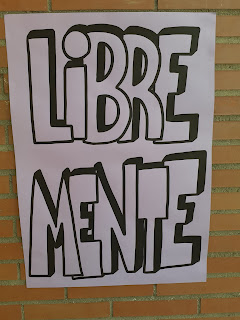 LiBRE
MENTE